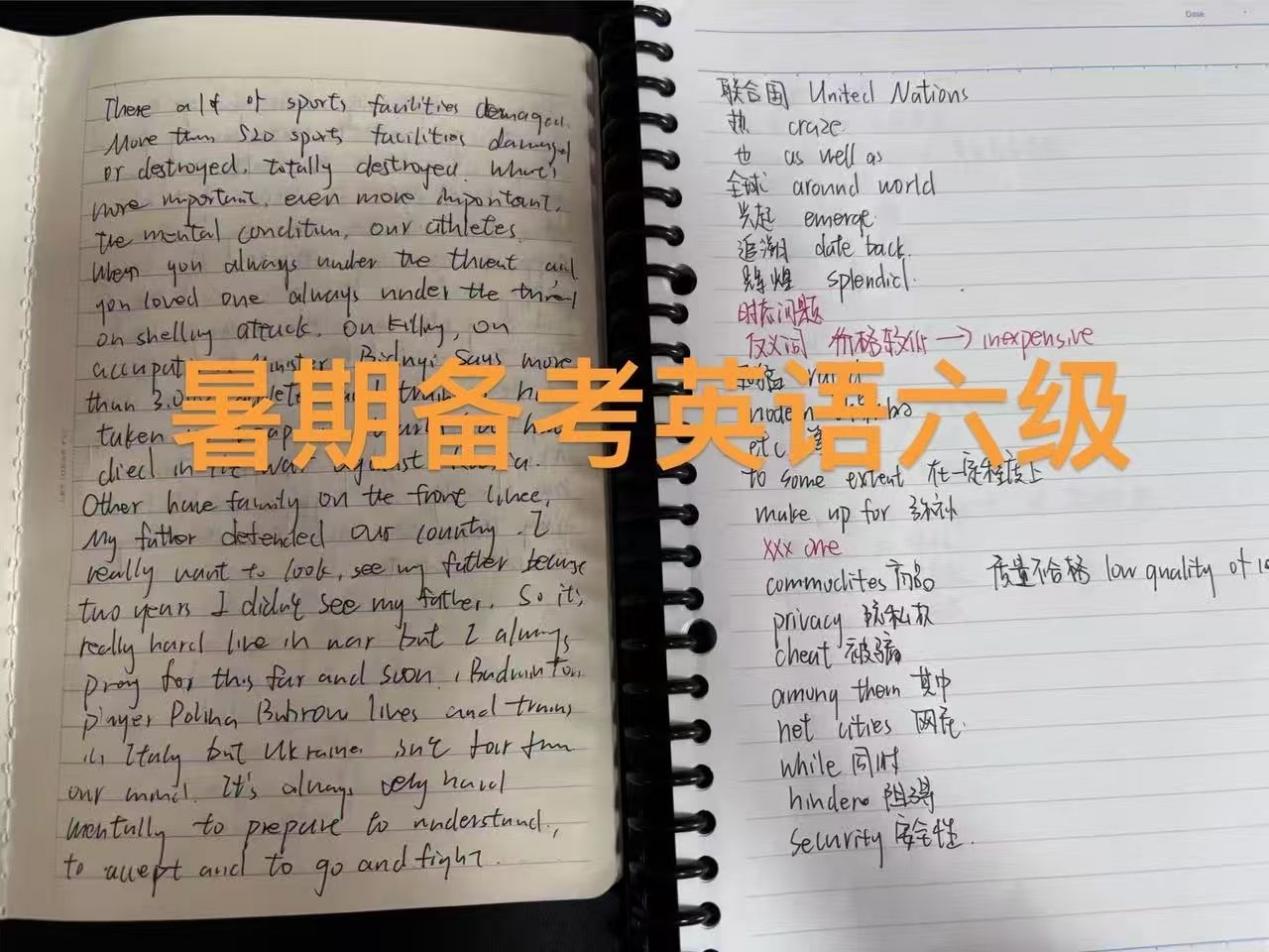 There a lot of sports facilities damaged.
More than 520 sports facilities damaged
or destroyed, totally destroyed. What's
more important, even more important,
the mental condition, our athletes.
When you always under the threat and
you loved one always under the threat
on shelling attack. On killing, on
says more
than
taken
died in the war against
Other have family on the front
My father defended our country. I
really want to look, see my father because
two years I didn't see my father. So it's
really hard live in war but I always
pray for this far and soon. Badminton
player Polina lives and trains
in Italy but Ukraine isn't far from
our mind. It's always very hard
mentally to prepare to understand,
to accept and to go and fight.
联合国 United Nations
热 craze
也 as well as
全球 around world
兴起 emerge
追溯 date back.
辉煌 splendid.
时态问题
反义词 价格较低 → inexpensive
暑期备考英语六级
etc 等
to some extent 在一定程度上
make up for 弥补
xxx one
commodites 商品 质量不合格 low quality of
privacy 隐私权
cheat 被骗
among them 其中
net cities 网民.
while 同时
hindere 阻碍
security 安全性.